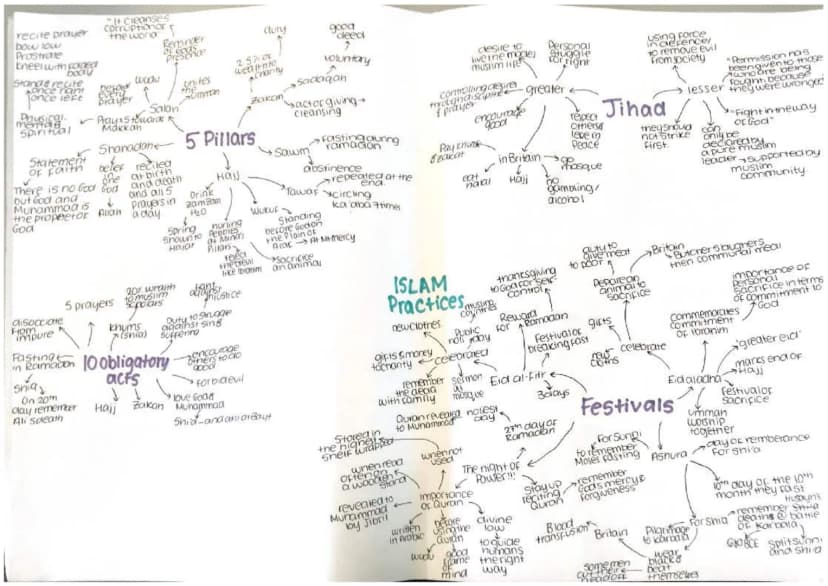 "It cleanses
corruption of
the world"
recite prayer
bow low
Prostrate
kneel with folded
body
Stand & recite
once right
once left
Physical
mental &
spiritual
Reminder
of Gods
presence
wudu
before
prayer
unites
the
ummah
Salah
Prays towards
Makkah
duty
2.5% of
wealth to
charity
Zakah
good
deed
voluntary
Sadaqah
act of giving
cleansing
5 Pillars
Shahadah
Statement
of Faith
There is no God
but God and
Muhammad is
the prophet of
God
belief
one
God
Allah
recited
at birth
and death
and at 5
prayers in
a day
Sawm
Fasting during
ramadan
abstinence
Hajj
Drink
zamzam
H2O
Spring
shown to
Hajar
hurling
Pebbles
at Minah
Pillars
reject
the devil
like Ibrahim
Sacrifice
an animal
Wukuf
Standing
before God on
the Plain of
Arafat
Tawaf
repeated at the
end
circling
Ka'aba 7 times
10 obligatory
acts
5 prayers
20% wealth
to muslim
scholars
khums
(shia)
fight
against
injustice
Duty to struggle
against sin &
suffering
encourage
others to do
good
forbid evil
love God &
Muhammad
Zakah
Hajj
Fasting
in Ramadan
Shia
On 20th
day remember
Ali's death
disociate
from
impure
Jihad
greater
desire to
live the model
muslim life
Personal
struggle
for right
controlling desires
through discipline
& prayer
encourage
good
respect
others &
live in
peace
in Britain
Pay khums
& zakat
eat
halal
Hajj
go
mosque
no
gambling/
alcohol
lesser
using force
in defence /
to remove evil
from society
"Permission has
been given to those
who are being
fought, because
they were wronged"
"Fight in the way
of God"
they should
not strike
first.
can
only be
declared by
a pure muslim
leader
supported by
muslim
community.
ISLAM
Practices
Festivals
Eid al-Fitr
thanksgiving
to God for self-
control
Reward
for
Ramadan
Festival of
breaking fast
3 days
celebrated
muslim
countries
Public
holiday
new clothes
gifts & money
to charity
remember
the dead
with family
sermon
at
mosque
Eid al adha
celebrate
gifts
new
cloths
Pays for an
animal to
sacrifice
duty to
give meat
to poor
Britain
Butcher slaughters
then communal meal
commemorates
commitment
of Ibrahim
importance of
personal
sacrifice in terms
of commitment to
God
'greater eid'
marks end of
Hajj
Festival of
sacrifice
Ummah
worship
together
The night of
Power!!!
Quran revealed
to Muhammad
holiest
day
27th day of
Ramadan
Stay up
reciting
Quran
remember
God's mercy &
forgiveness
Importance
of Quran
when not
used
Stored in
the highest
shelf wrapped
when read
often on
a wooden
stand
revealed to
Muhammad
by Jibril
written
in Arabic
before
using the
Quran
wudu
good
frame
of
mind
divine
law
to guide
humans
the right
way
Ashura
for Sunni
to remember
Moses fasting
day of rememberance
for shia
10th day of the 10th
month they fast
for shia
remember Husayn's
death @ battle
of Karbala
split sunni
and shia
Pilgrimage
to karbala
wear
black &
beat
themselves
Britain
Blood
transfusion
some men